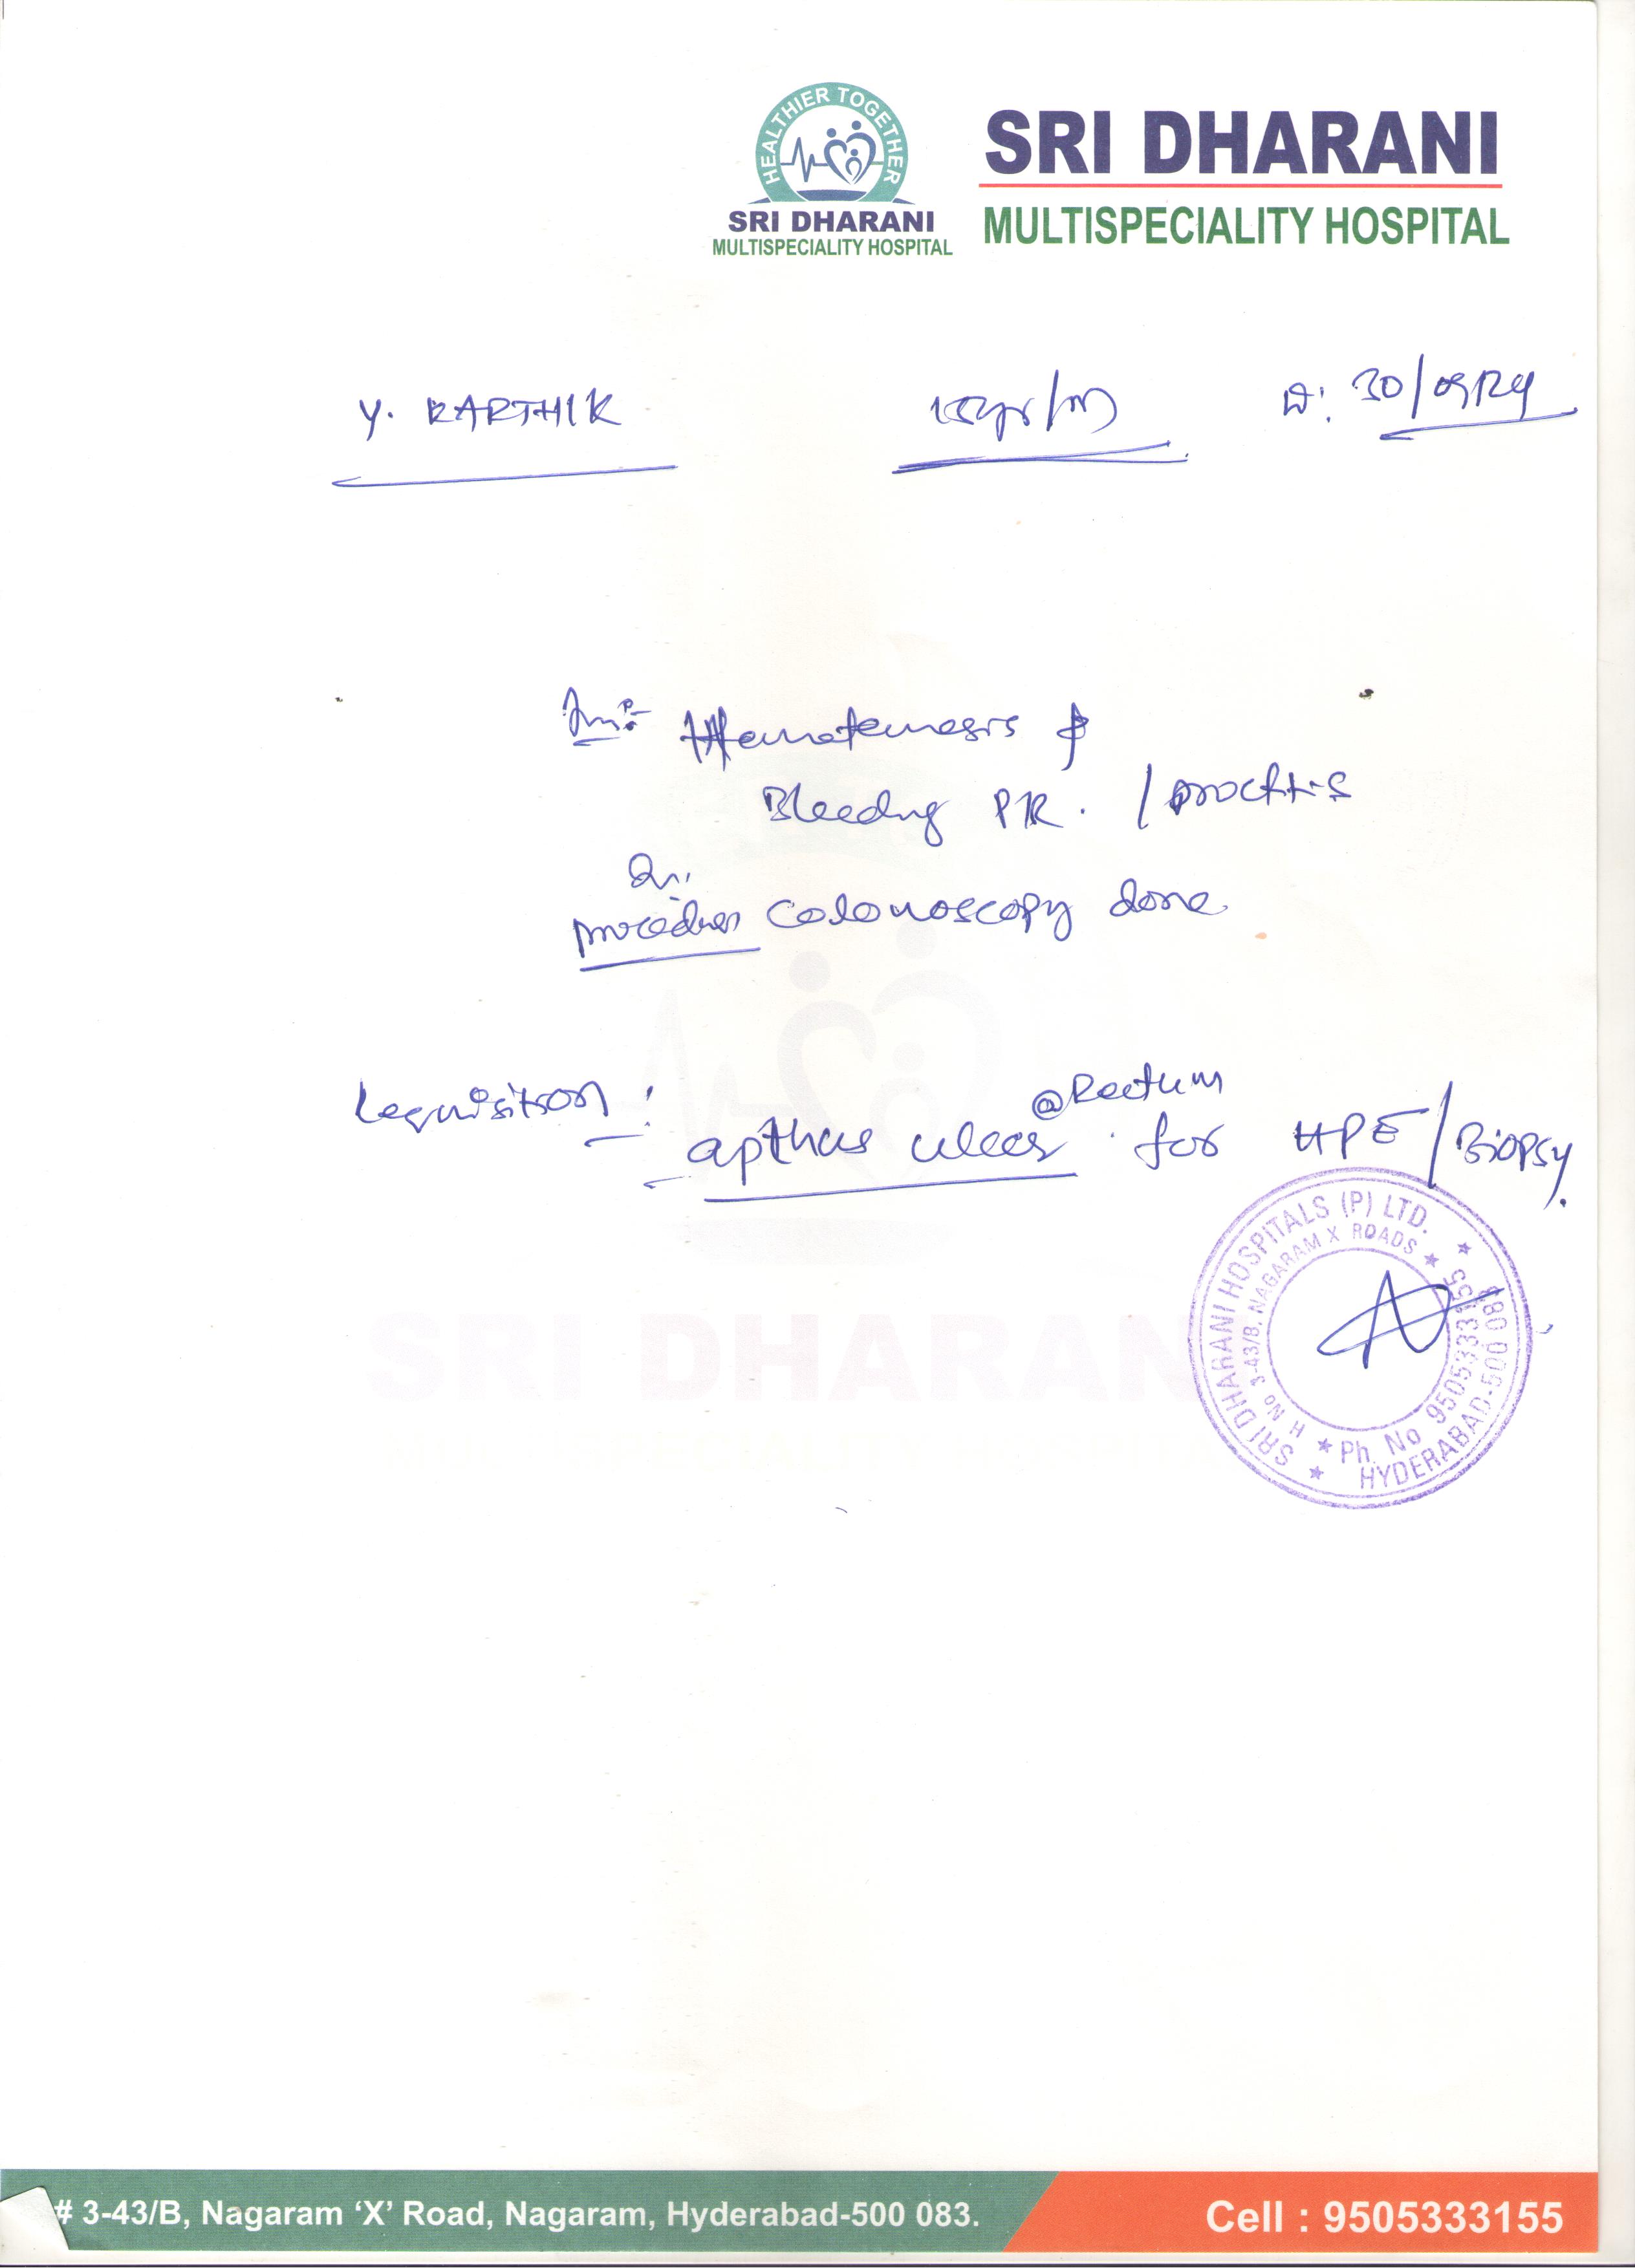 HEALTHIER TOGETHER
SRI DHARANI
MULTISPECIALITY HOSPITAL
SRI DHARANI
MULTISPECIALITY HOSPITAL
Y. KARTHIK
30/09/24
Imp:- Hematemesis &
Bleeding PR. / proctitis
procedure Colonoscopy done
Requisition :
apthus ulcer @Rectum for HPE/Biopsy.
SRI DHARANI HOSPITALS (P) LTD.
H No 3-43/B, NAGARAM X ROADS
Ph. No 9505333155
HYDERABAD-500 083
SRI DHARANI
# 3-43/B, Nagaram ‘X’ Road, Nagaram, Hyderabad-500 083.
Cell : 9505333155